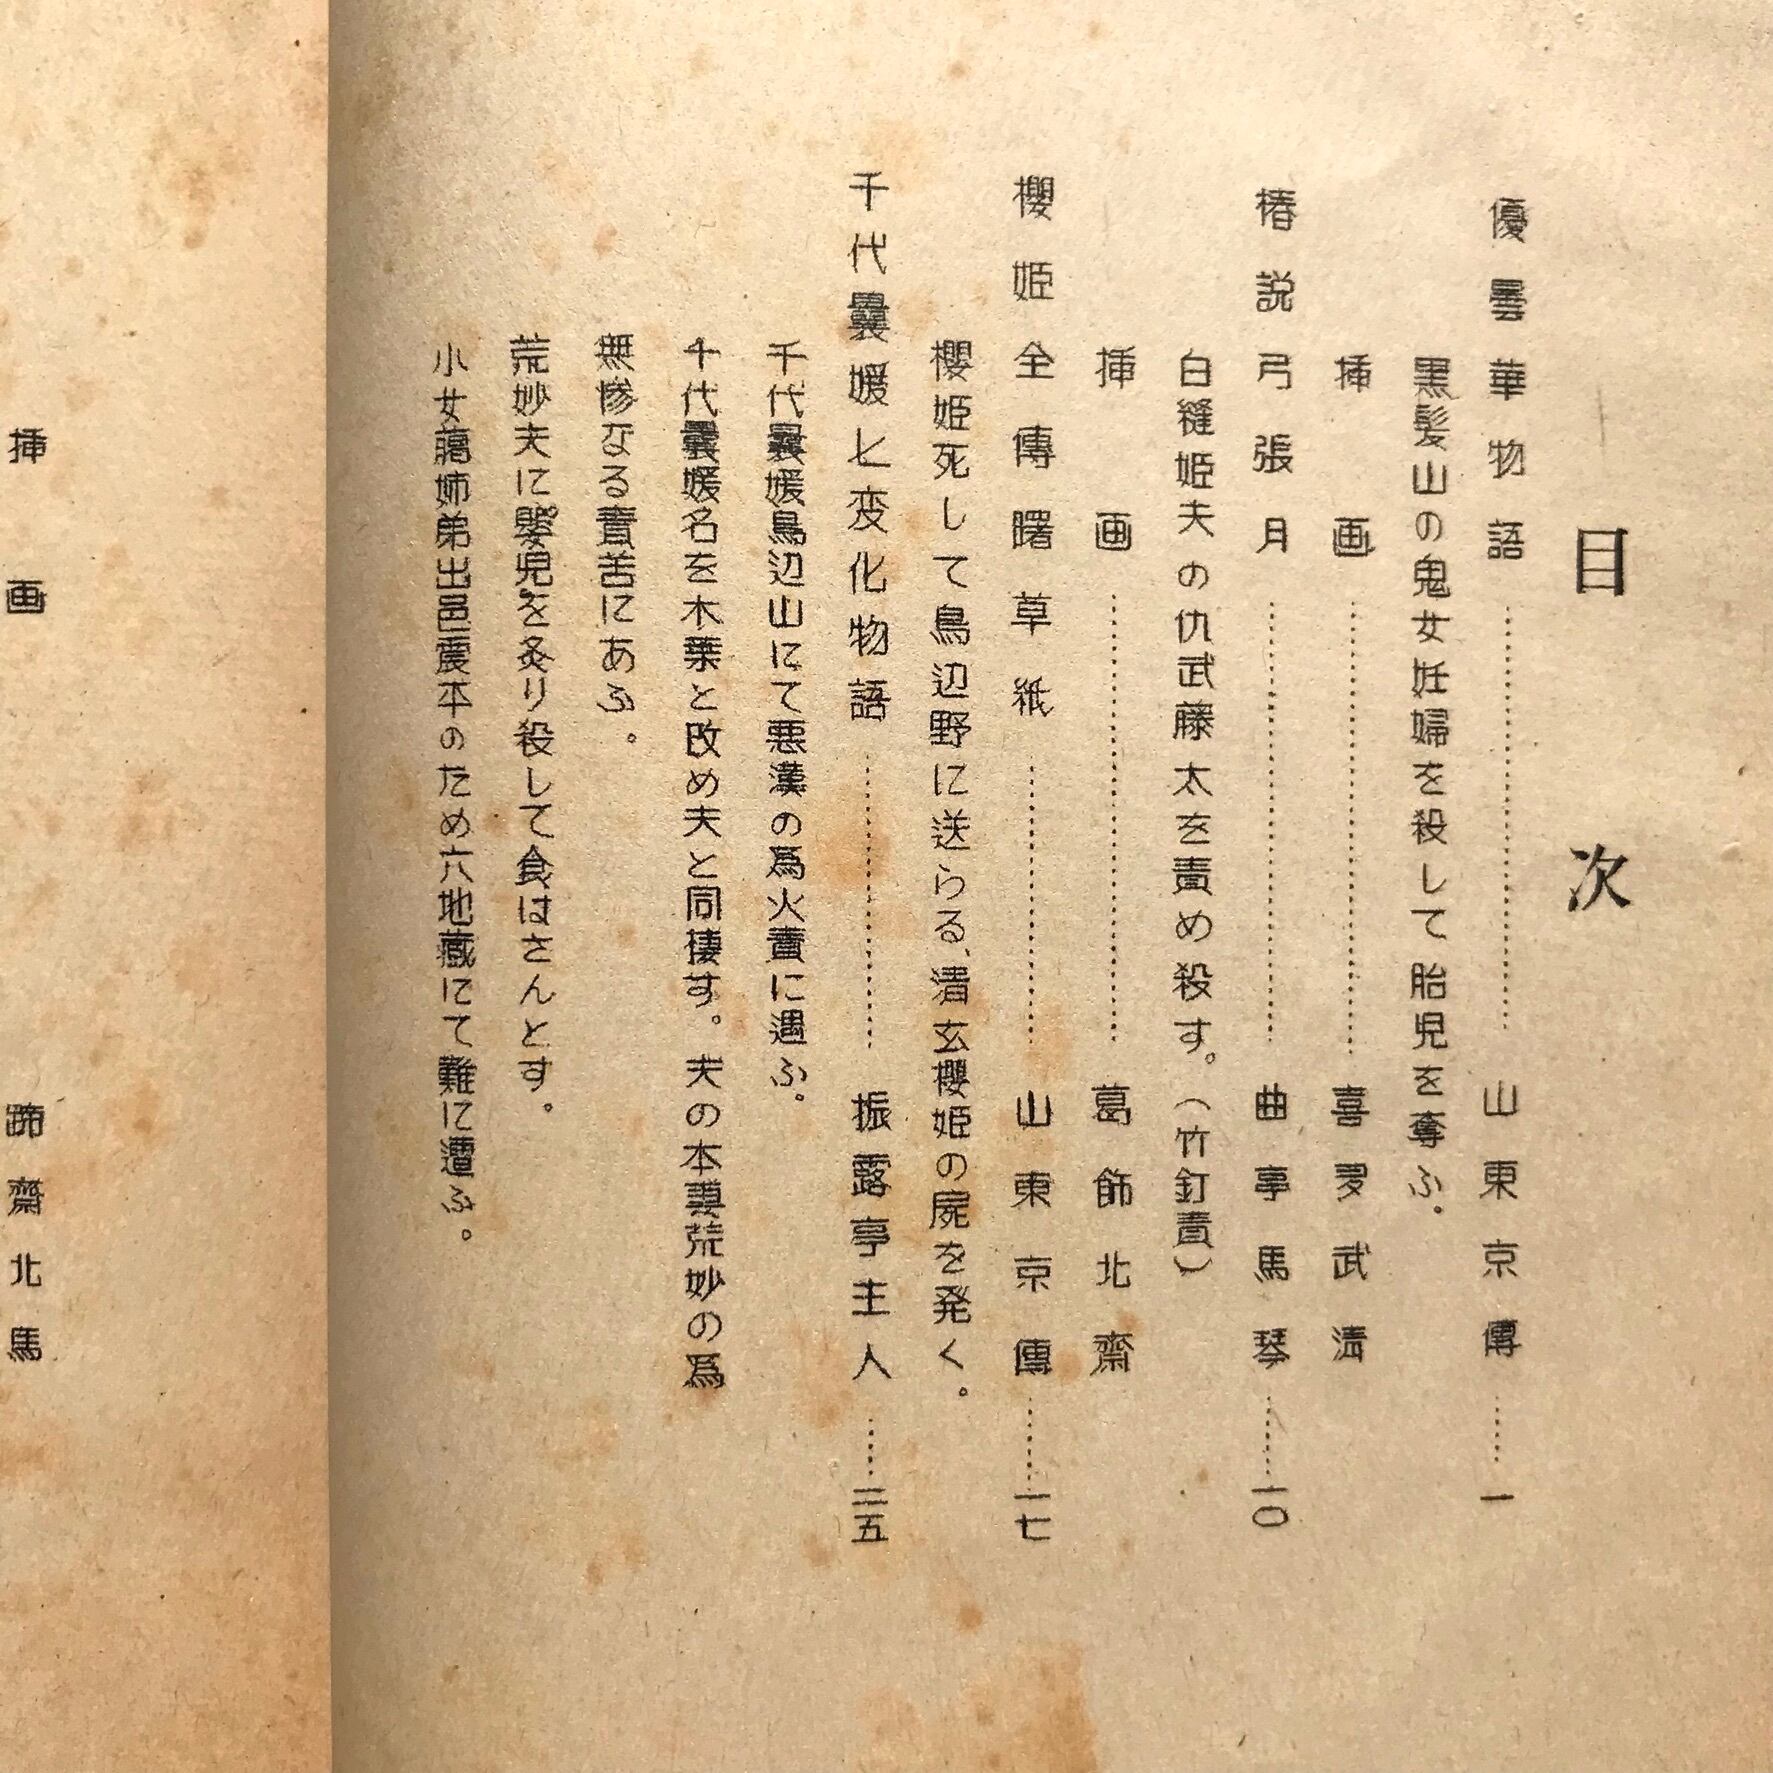 目次
優曇華物語……山東京傳……一
黒髪山の鬼女妊婦を殺して胎児を奪ふ。
挿画……喜多武清
椿説弓張月……曲亭馬琴……一〇
白縫姫夫の仇武藤太を責め殺す。(竹釘責)
挿画……葛飾北齋
櫻姫全傳曙草紙……山東京傳……一七
櫻姫死して鳥辺野に送らる、清玄櫻姫の屍を発く。
千代曩媛七変化物語……振露亭主人……二五
千代曩媛鳥辺山にて悪漢の爲火責に遇ふ。
千代曩媛名を木葉と改め夫と同棲す。夫の本妻荒妙の爲
無惨なる責苦にあふ。
荒妙夫に嬰児を炙り殺して食はさんとす。
小女萬姉弟出邑震本のため六地蔵にて難に遭ふ。
挿画 蹄齋北馬